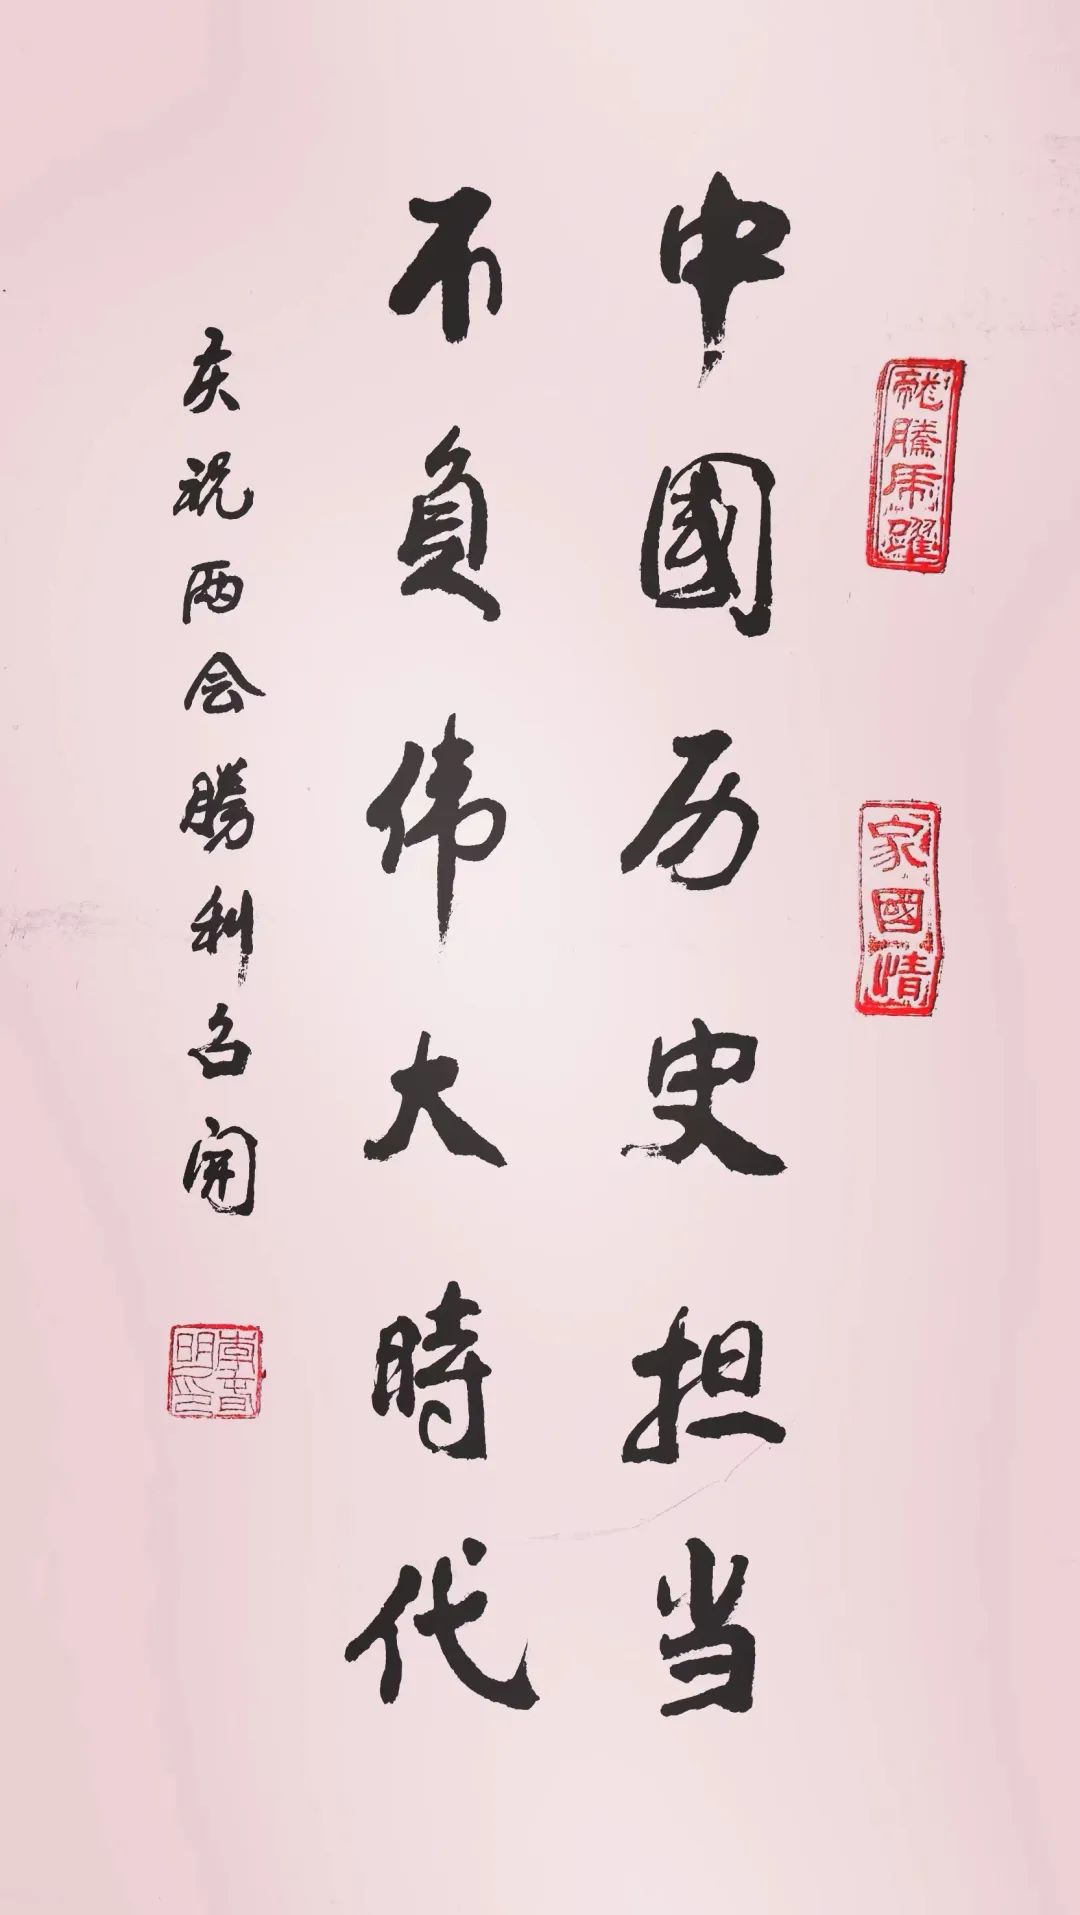 龍騰虎躍
家國情
中國历史担当
不負伟大時代
庆祝两会勝利召開